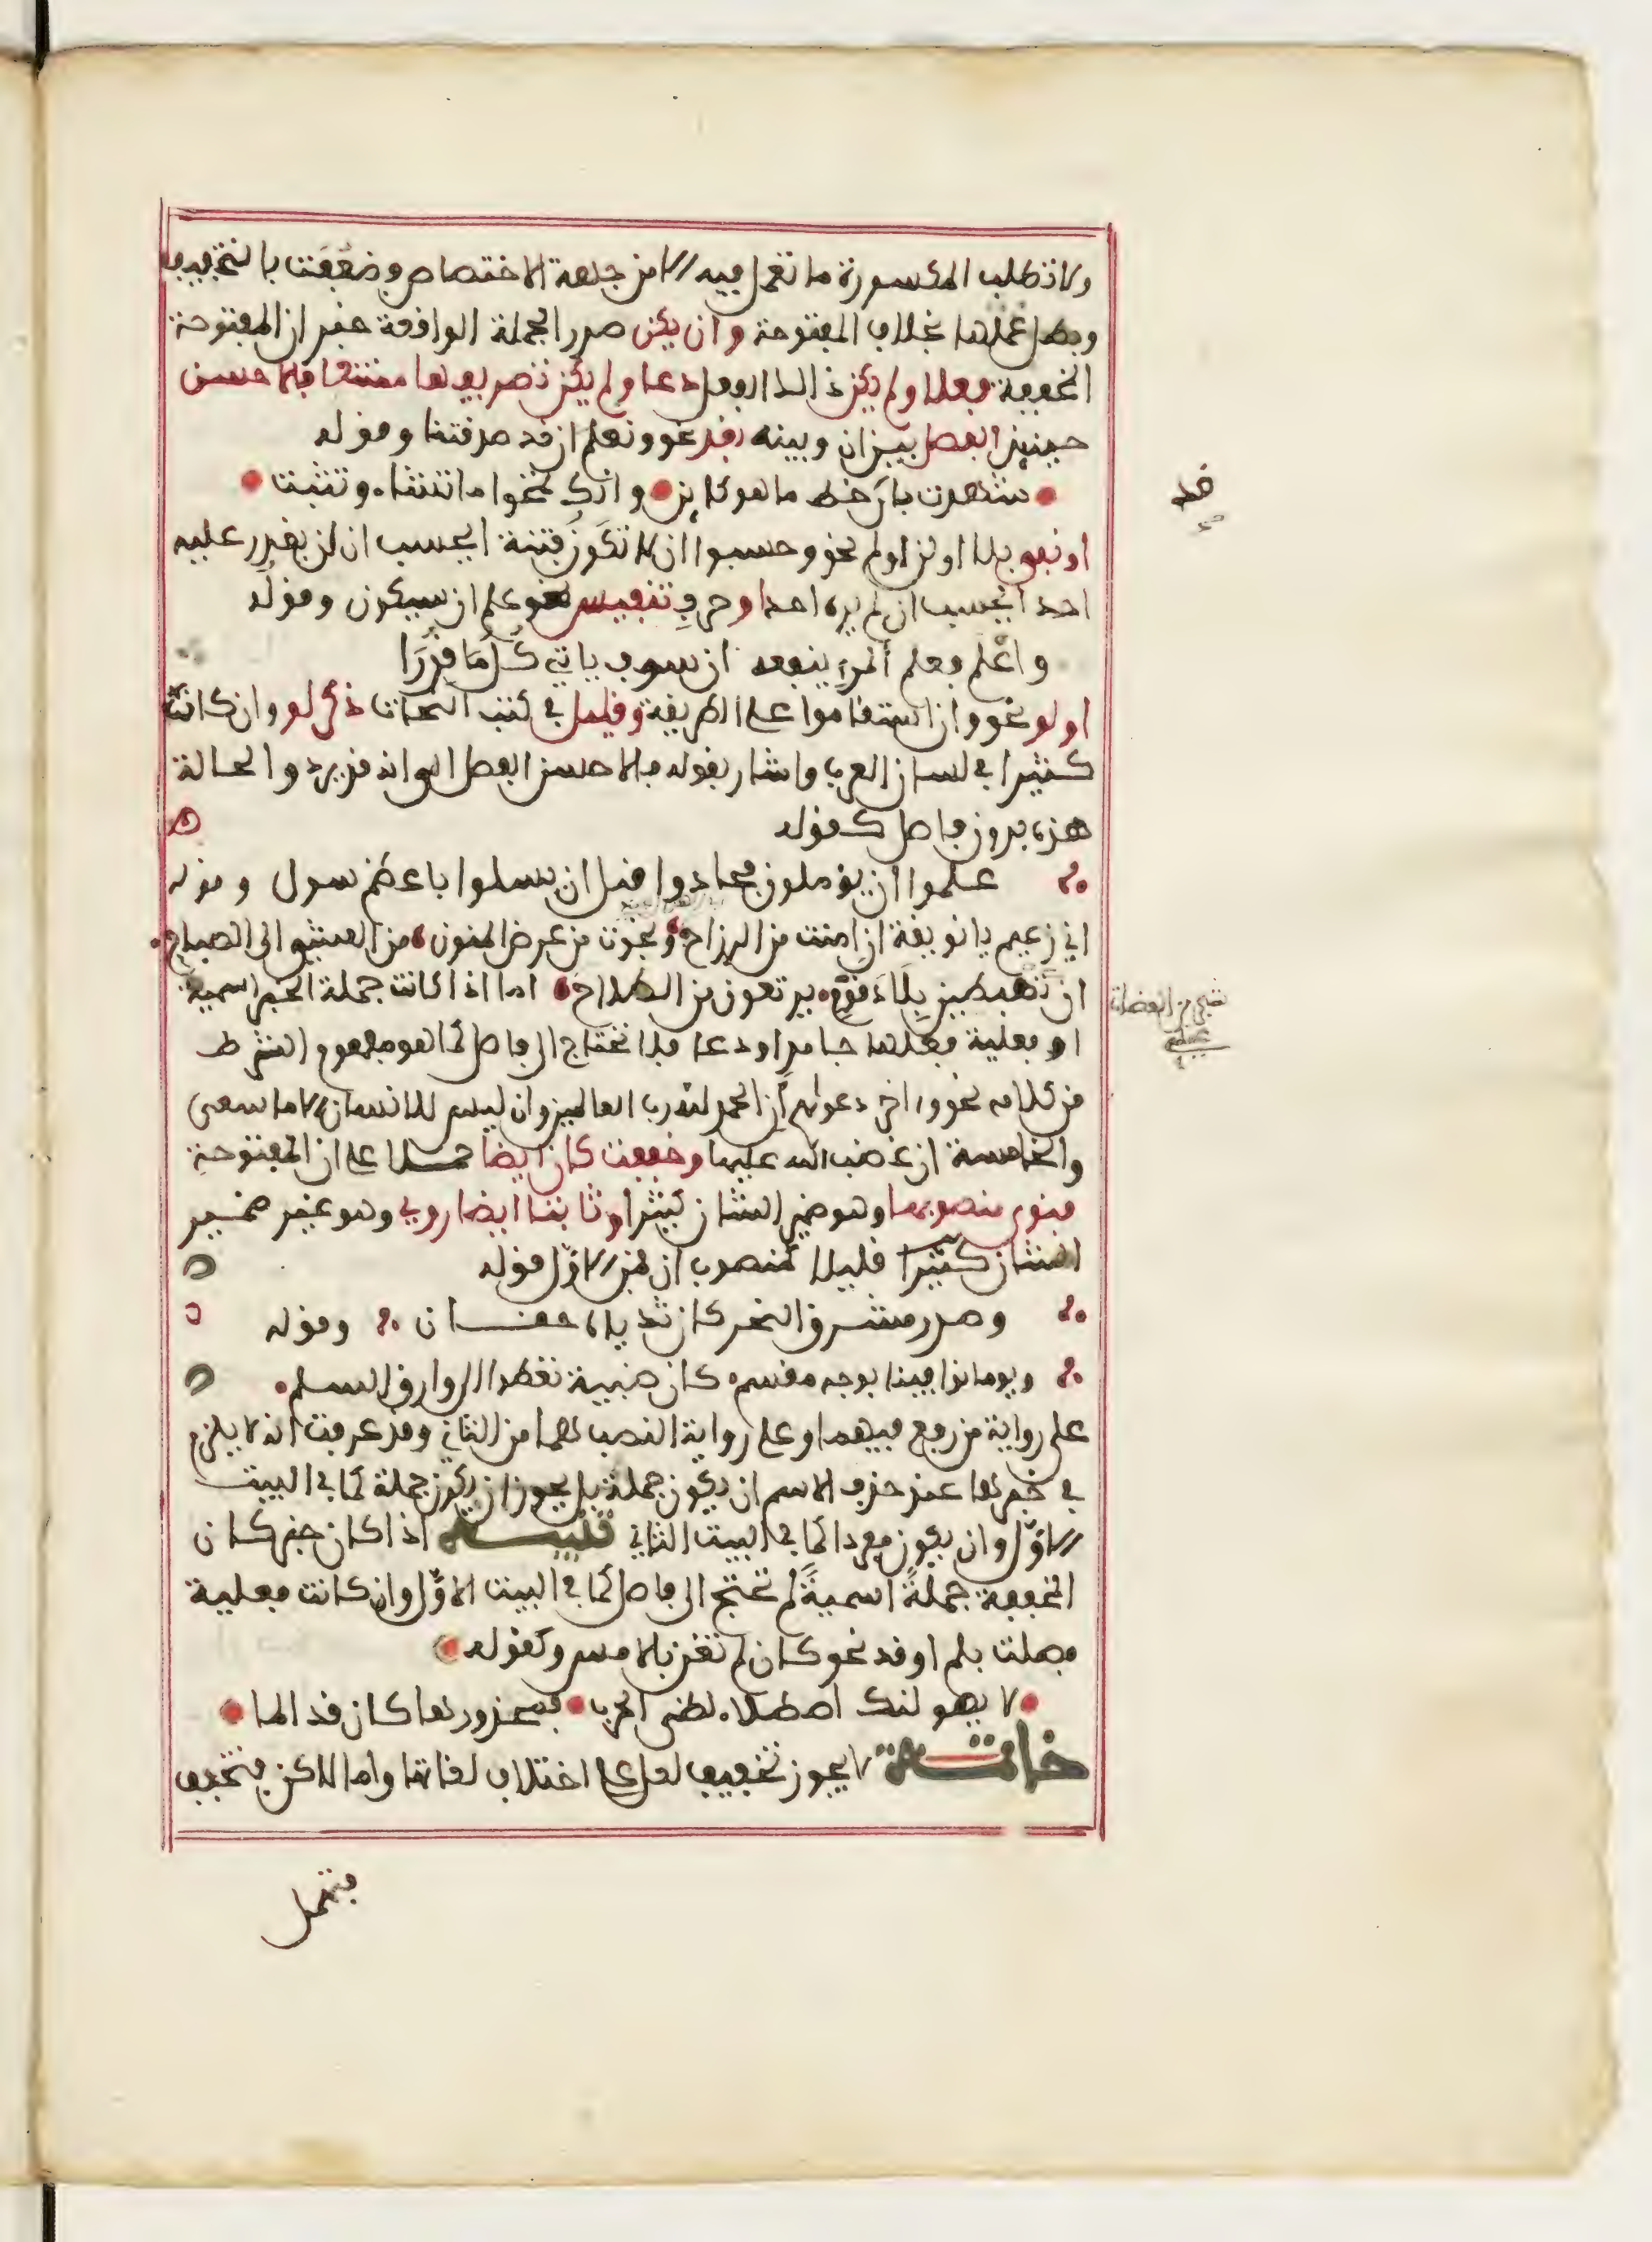 ولا تطلب المكسورة ما تعمل فيه الا من جهة الاختصاص وضعفت بالتخفيف
وبطل عملها بخلاف المفتوحة وان يكن صدر الجملة الواقعة خبر ان المفتوحة
المخففة فعلا ولم يكن ذالك الفعل دعا ولم يكن تصريفها ممتنعا فالاحسن
حينئذ الفصل بين ان وبينه بقد نحو ونعلم ان قد صدقتنا وقوله
شهدت بان خط ما هو كاين وانك تمحوا ما تشاء وتثبت
خط
او نفي بلا او لن او لم نحو وحسبوا ان لا تكون فتنة ايحسب ان لن يقدر عليه
احد ايحسب ان لم يره احد او حرف تنفيس نحو علم ان سيكون وقوله
واعلم فعلم المرء ينفعه ان سوف ياتي كل ما قدرا
او لو نحو وان لو استقاموا على الطريقة وقليل في كتب النحات ذكر لو وان كانت
كثيرا في لسان العرب واشار بقوله فالاحسن الفصل الى انه قد يرد والحالة
هذه بدون فاصل كقوله
علموا ان يؤملون فجادوا قبل ان يسلوا باعظم سول وقوله
اني زعيم يا نويقة ان امنت من الرزاح ونجوت من عرض المنون من العشي الى الصباح
ان تهبطين بلاد قوم يرتعون من الطلاح اما اذا كانت جملة الخبر اسمية
او فعلية فعلها جامد او دعا فلا تحتاج الى فاصل كما هو مفهوم الشرط
من كلامه نحو وءاخر دعواهم ان الحمد لله رب العالمين وان ليس للانسان الا ما سعى
والخامسة ان غضب الله عليها وخففت كان ايضا حملا على ان المفتوحة
فنوي منصوبها وهو ضمير الشان كثيرا وثابتا ايضا روي وهو غير ضمير
الشان كثيرا قليلا كمنصوب ان فمن الاول قوله
وصدر مشرق النحر كان ثدياه حقان وقوله
ويوما توافينا بوجه مقسم كان ظبية تعطوا الى وارق السلم
على رواية من رفع فيهما وعلى رواية النصب هما من الثاني وقد عرفت انه لا يلزم
في خبرها عند حذف الاسم ان يكون جملة بل يجوز ان يكون جملة كما في البيت
الاول وان يكون مفردا كما في البيت الثاني تنبيه اذا كان خبر كان
المخففة جملة اسمية لم تحتج الى فاصل كما في البيت الاول وان كانت فعلية
فصلت بلم او قد نحو كان لم تغن بالامس وكقوله
لا يهولنك اصطلاء لظى الحرب فمحذورها كان قد الما
خاتمة لا يجوز تخفيف لعل على اختلاف لغاتها واما لاكن فتخفف
فتهمل